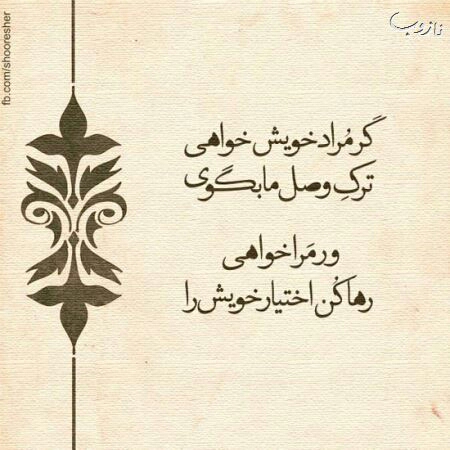 fb.com/shooresher
نازوب
گر مُراد خویش خواهی
ترکِ وصل ما بگوی
ور مَرا خواهی
رها کُن اختیار خویش را